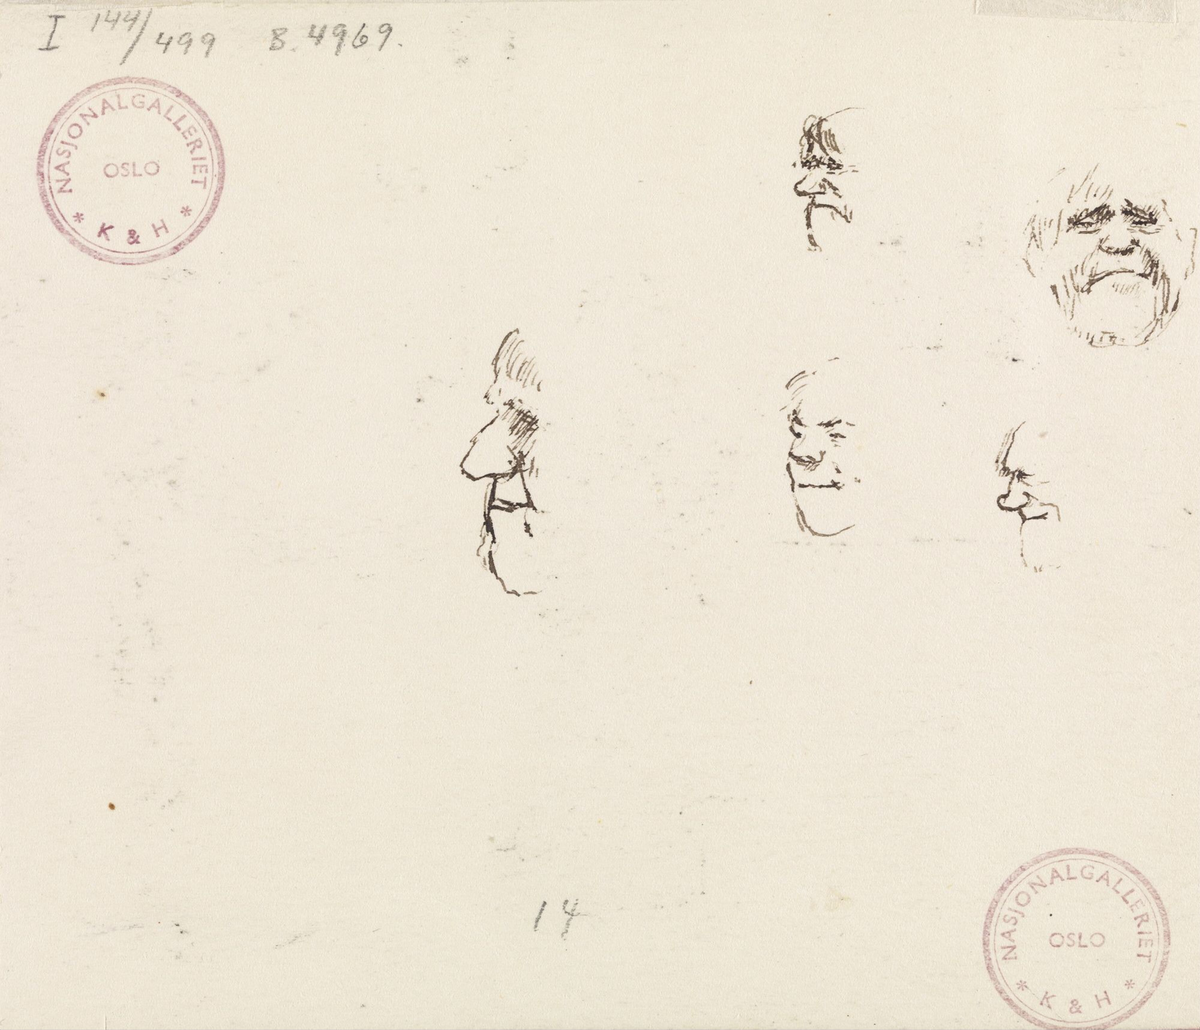 I 144/499 B. 4969.
NASJONALGALLERIET
OSLO
* K & H *
14
NASJONALGALLERIET
OSLO
* K & H *